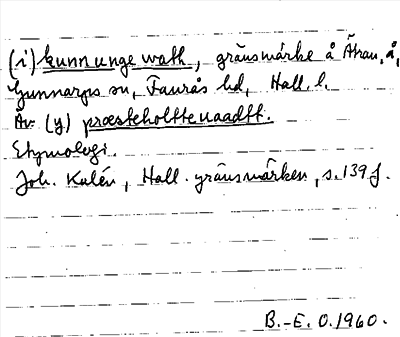 (i) kunnunge wath, gränsmärke å Ätran, å,
Gunnarps sn, Faurås hd, Hall. l.
Äv. (y) præsteholttevaadtt.
Etymologi.
Joh. Kalén, Hall. gränsmärken, s. 139 f.
B.-E. O. 1960.